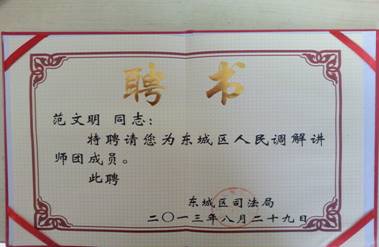 聘书
范文明 同志：
特聘请您为东城区人民调解讲
师团成员。
此聘
东城区司法局
二〇一三年八月二十九日